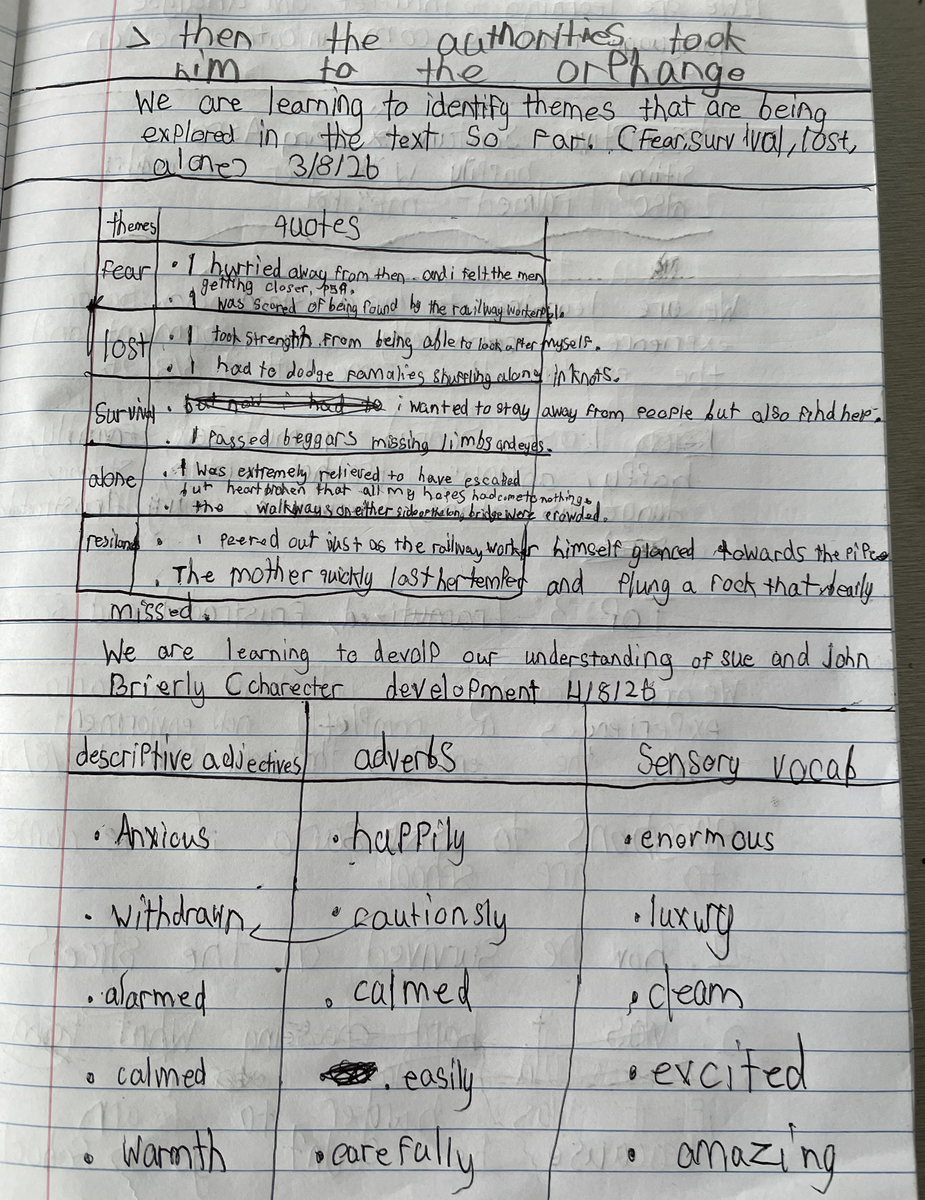 > then the authorities took
him to the orphange
We are learning to identify themes that are being
explored in the text so far. (Fear, survival, lost,
alone) 3/8/26
themes quotes
fear • I hurried away from then. and i felt the men
getting closer, p59.
• I was scared of being found by the railway worker
lost • I took strength from being able to look after myself.
• I had to dodge famalies shuffling along in knots.
Surviv • i wanted to stay away from people but also find her.
• I passed beggars missing limbs and eyes.
alone • I was extremely relieved to have escabed
but heartbroken that all my hopes had come to nothing.
• the walkways on either side of the long bridge were crowded.
• i peered out just as the railway worker himself glanced towards the pipe
• The mother quickly lost her temped and flung a rock that nearly
missed.
We are learning to devolp our understanding of sue and John
Brierly (charecter development 4/8/26
descriptive adjectives adverbs Sensory vocab
• Anxious • happily • enormous
• withdrawn • cautionsly • luxury
• alarmed • calmed • cleam
• calmed • easily • excited
• Warmth • carefully • amazing